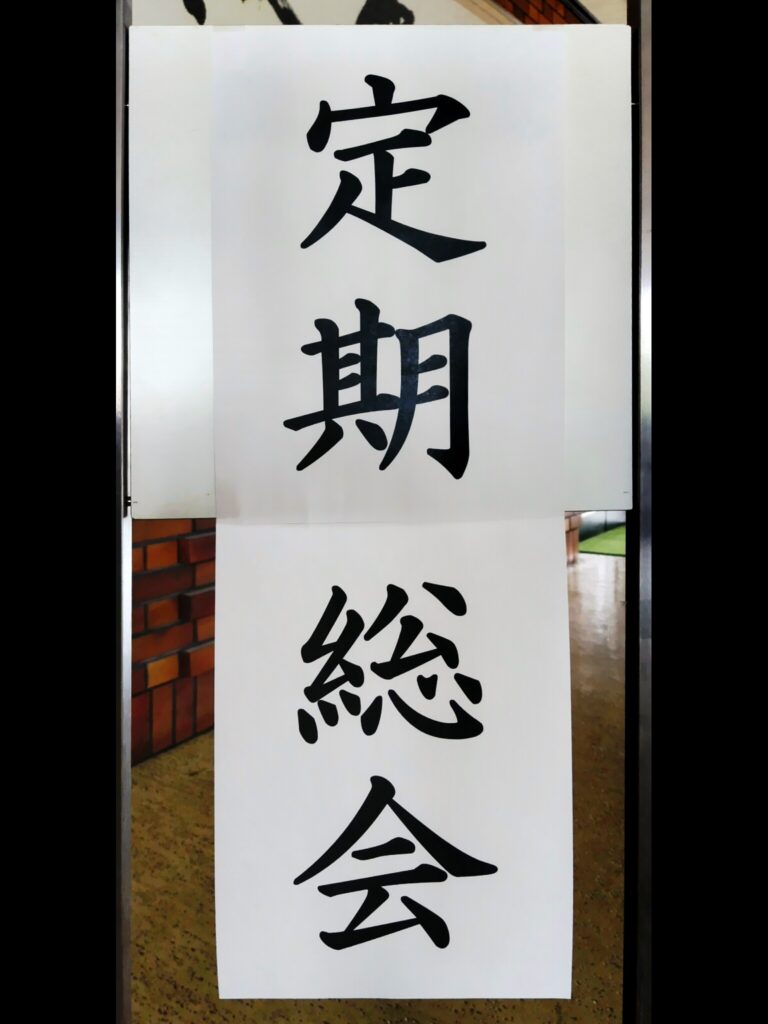 定期総会